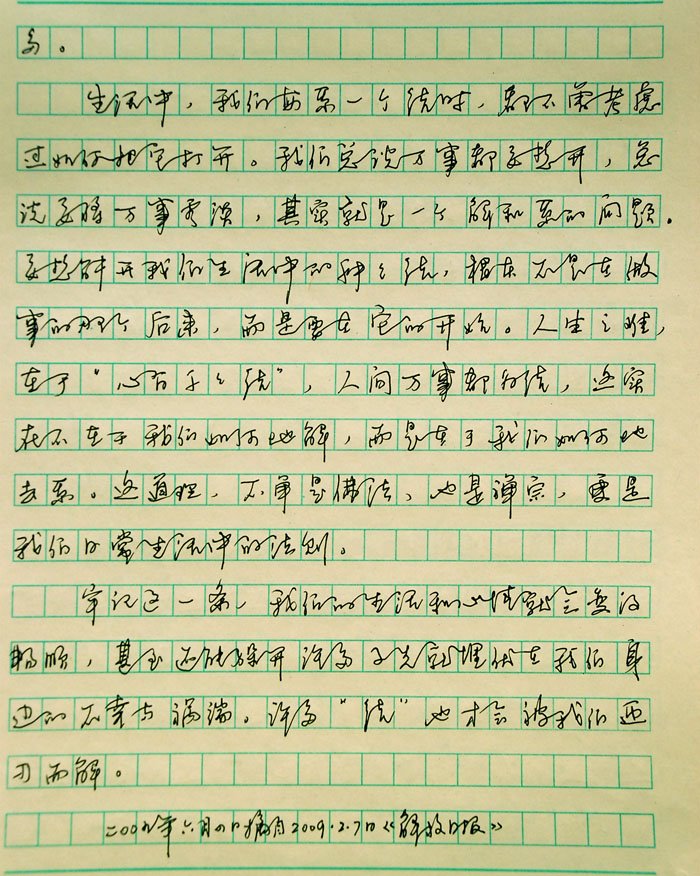 多。
生活中，我们每系一个结时，都不曾考虑
过如何把它打开。我们总说万事都要想开，总
说要将万事看淡，其实就是一个解和系的问题。
要想解开我们生活中的种种结，根本不是在做
事的那个后来，而是要在它的开始。人生之难，
在于“心有千千结”，人间万事都为结，这实
在不在于我们如何地解，而是在于我们如何地
去系。这道理，不单是佛法，也是禅宗，更是
我们日常生活中的法则。
牢记这一条，我们的生活和心情就会变得
畅顺，甚至还能躲开许多预先就埋伏在我们身
边的不幸与祸端。许多“结”也才会被我们迎
刃而解。
二〇〇九年六月四日摘自2009.2.7日《解放日报》